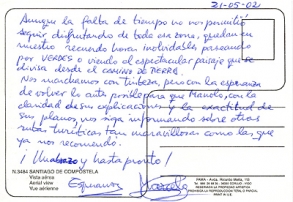 21-05-02
Aunque la falta de tiempo no nos permitió
seguir disfrutando de todo esa zona, quedan en
nuestro recuerdo horas inolvidables paseando
por VERDES o viendo el espectacular paisaje que se
divisa desde el CAMIÑO DE FERRO.
Nos marchamos con tristeza, pero con la esperanza
de volver lo antes posible para que Manolo, con la
claridad de sus explicaciones y la exactitud de
sus planos, nos siga informando sobre otras
rutas turísticas tan maravillosas como las que
ya nos recomendó.
¡Un abrazo y hasta pronto!
N.3484 SANTIAGO DE COMPOSTELA
Vista aérea
Aerial view
Vue aérienne
Esperanza